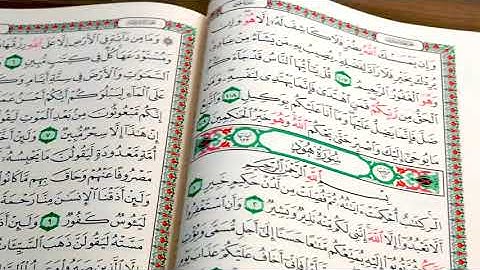 وَإِن يَمْسَسْكَ ٱللَّهُ بِضُرٍّ فَلَا كَاشِفَ لَهُۥٓ إِلَّا هُوَ وَإِن
يُرِدْكَ بِخَيْرٍ فَلَا رَآدَّ لِفَضْلِهِۦ يُصِيبُ بِهِۦ مَن يَشَآءُ مِنْ عِبَادِهِۦ
وَهُوَ ٱلْغَفُورُ ٱلرَّحِيمُ ١٠٧ قُلْ يَٰٓأَيُّهَا ٱلنَّاسُ قَدْ جَآءَكُمُ
ٱلْحَقُّ مِن رَّبِّكُمْ فَمَنِ ٱهْتَدَىٰ فَإِنَّمَا يَهْتَدِى لِنَفْسِهِۦ وَمَن
ضَلَّ فَإِنَّمَا يَضِلُّ عَلَيْهَا وَمَآ أَنَا۠ عَلَيْكُم بِوَكِيلٍ ١٠٨ وَٱتَّبِعْ
مَا يُوحَىٰٓ إِلَيْكَ وَٱصْبِرْ حَتَّىٰ يَحْكُمَ ٱللَّهُ وَهُوَ خَيْرُ ٱلْحَٰكِمِينَ ١٠٩
سُورَةُ هُودٍ
بِسْمِ ٱللَّهِ ٱلرَّحْمَٰنِ ٱلرَّحِيمِ
الٓر كِتَٰبٌ أُحْكِمَتْ ءَايَٰتُهُۥ ثُمَّ فُصِّلَتْ مِن لَّدُنْ حَكِيمٍ خَبِيرٍ ١
أَلَّا تَعْبُدُوٓا۟ إِلَّا ٱللَّهَ إِنَّنِى لَكُم مِّنْهُ نَذِيرٌ وَبَشِيرٌ ٢ وَأَنِ ٱسْتَغْفِرُوا۟
رَبَّكُمْ ثُمَّ تُوبُوٓا۟ إِلَيْهِ يُمَتِّعْكُم مَّتَٰعًا حَسَنًا إِلَىٰٓ أَجَلٍ مُّسَمًّى وَيُؤْتِ
فَضْلَهُۥ وَإِن تَوَلَّوْا۟ فَإِنِّىٓ أَخَافُ عَلَيْكُمْ عَذَابَ يَوْمٍ
وَمَا مِن دَآبَّةٍ فِى ٱلْأَرْضِ إِلَّا عَلَى ٱللَّهِ رِزْقُهَا
وَمُسْتَوْدَعَهَا كُلٌّ فِى كِتَٰبٍ مُّبِينٍ ٦
ٱلسَّمَٰوَٰتِ وَٱلْأَرْضَ فِى سِتَّةِ أَيَّامٍ وَكَانَ
عَلَى ٱلْمَآءِ لِيَبْلُوَكُمْ أَيُّكُمْ أَحْسَنُ
إِنَّكُم مَّبْعُوثُونَ مِنۢ بَعْدِ ٱلْمَوْتِ لَيَقُولَنَّ
هَٰذَآ إِلَّا سِحْرٌ مُّبِينٌ ٧ وَلَئِنْ
أُمَّةٍ مَّعْدُودَةٍ لَّيَقُولُنَّ مَا يَحْبِسُهُۥٓ
مَصْرُوفًا عَنْهُمْ وَحَاقَ بِهِم مَّا كَانُوا۟
وَلَئِنْ أَذَقْنَا ٱلْإِنسَٰنَ مِنَّا رَحْمَةً
لَيَـُٔوسٌ كَفُورٌ ٩ وَلَئِنْ
مَسَّتْهُ لَيَقُولَنَّ ذَهَبَ ٱلسَّيِّـَٔاتُ
إِلَّا ٱلَّذِينَ صَبَرُوا۟